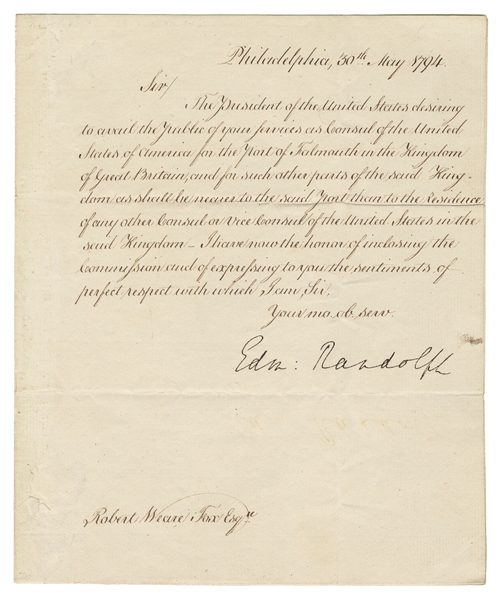 Philadelphia, 30th May 1794.
Sir/
The President of the United States desiring
to avail the Public of your services as Consul of the United
States of America for the Port of Falmouth in the Kingdom
of Great Britain, and for such other parts of the said King-
dom as shall be nearer to the said Port than to the Residence
of any other Consul or Vice Consul of the United States in the
said Kingdom – I have now the honor of inclosing the
Commission and of expressing to you the sentiments of
perfect respect with which I am, Sir,
Your mo. ob. serv.
Edm: Randolph
Robert Weare Fox Esqre